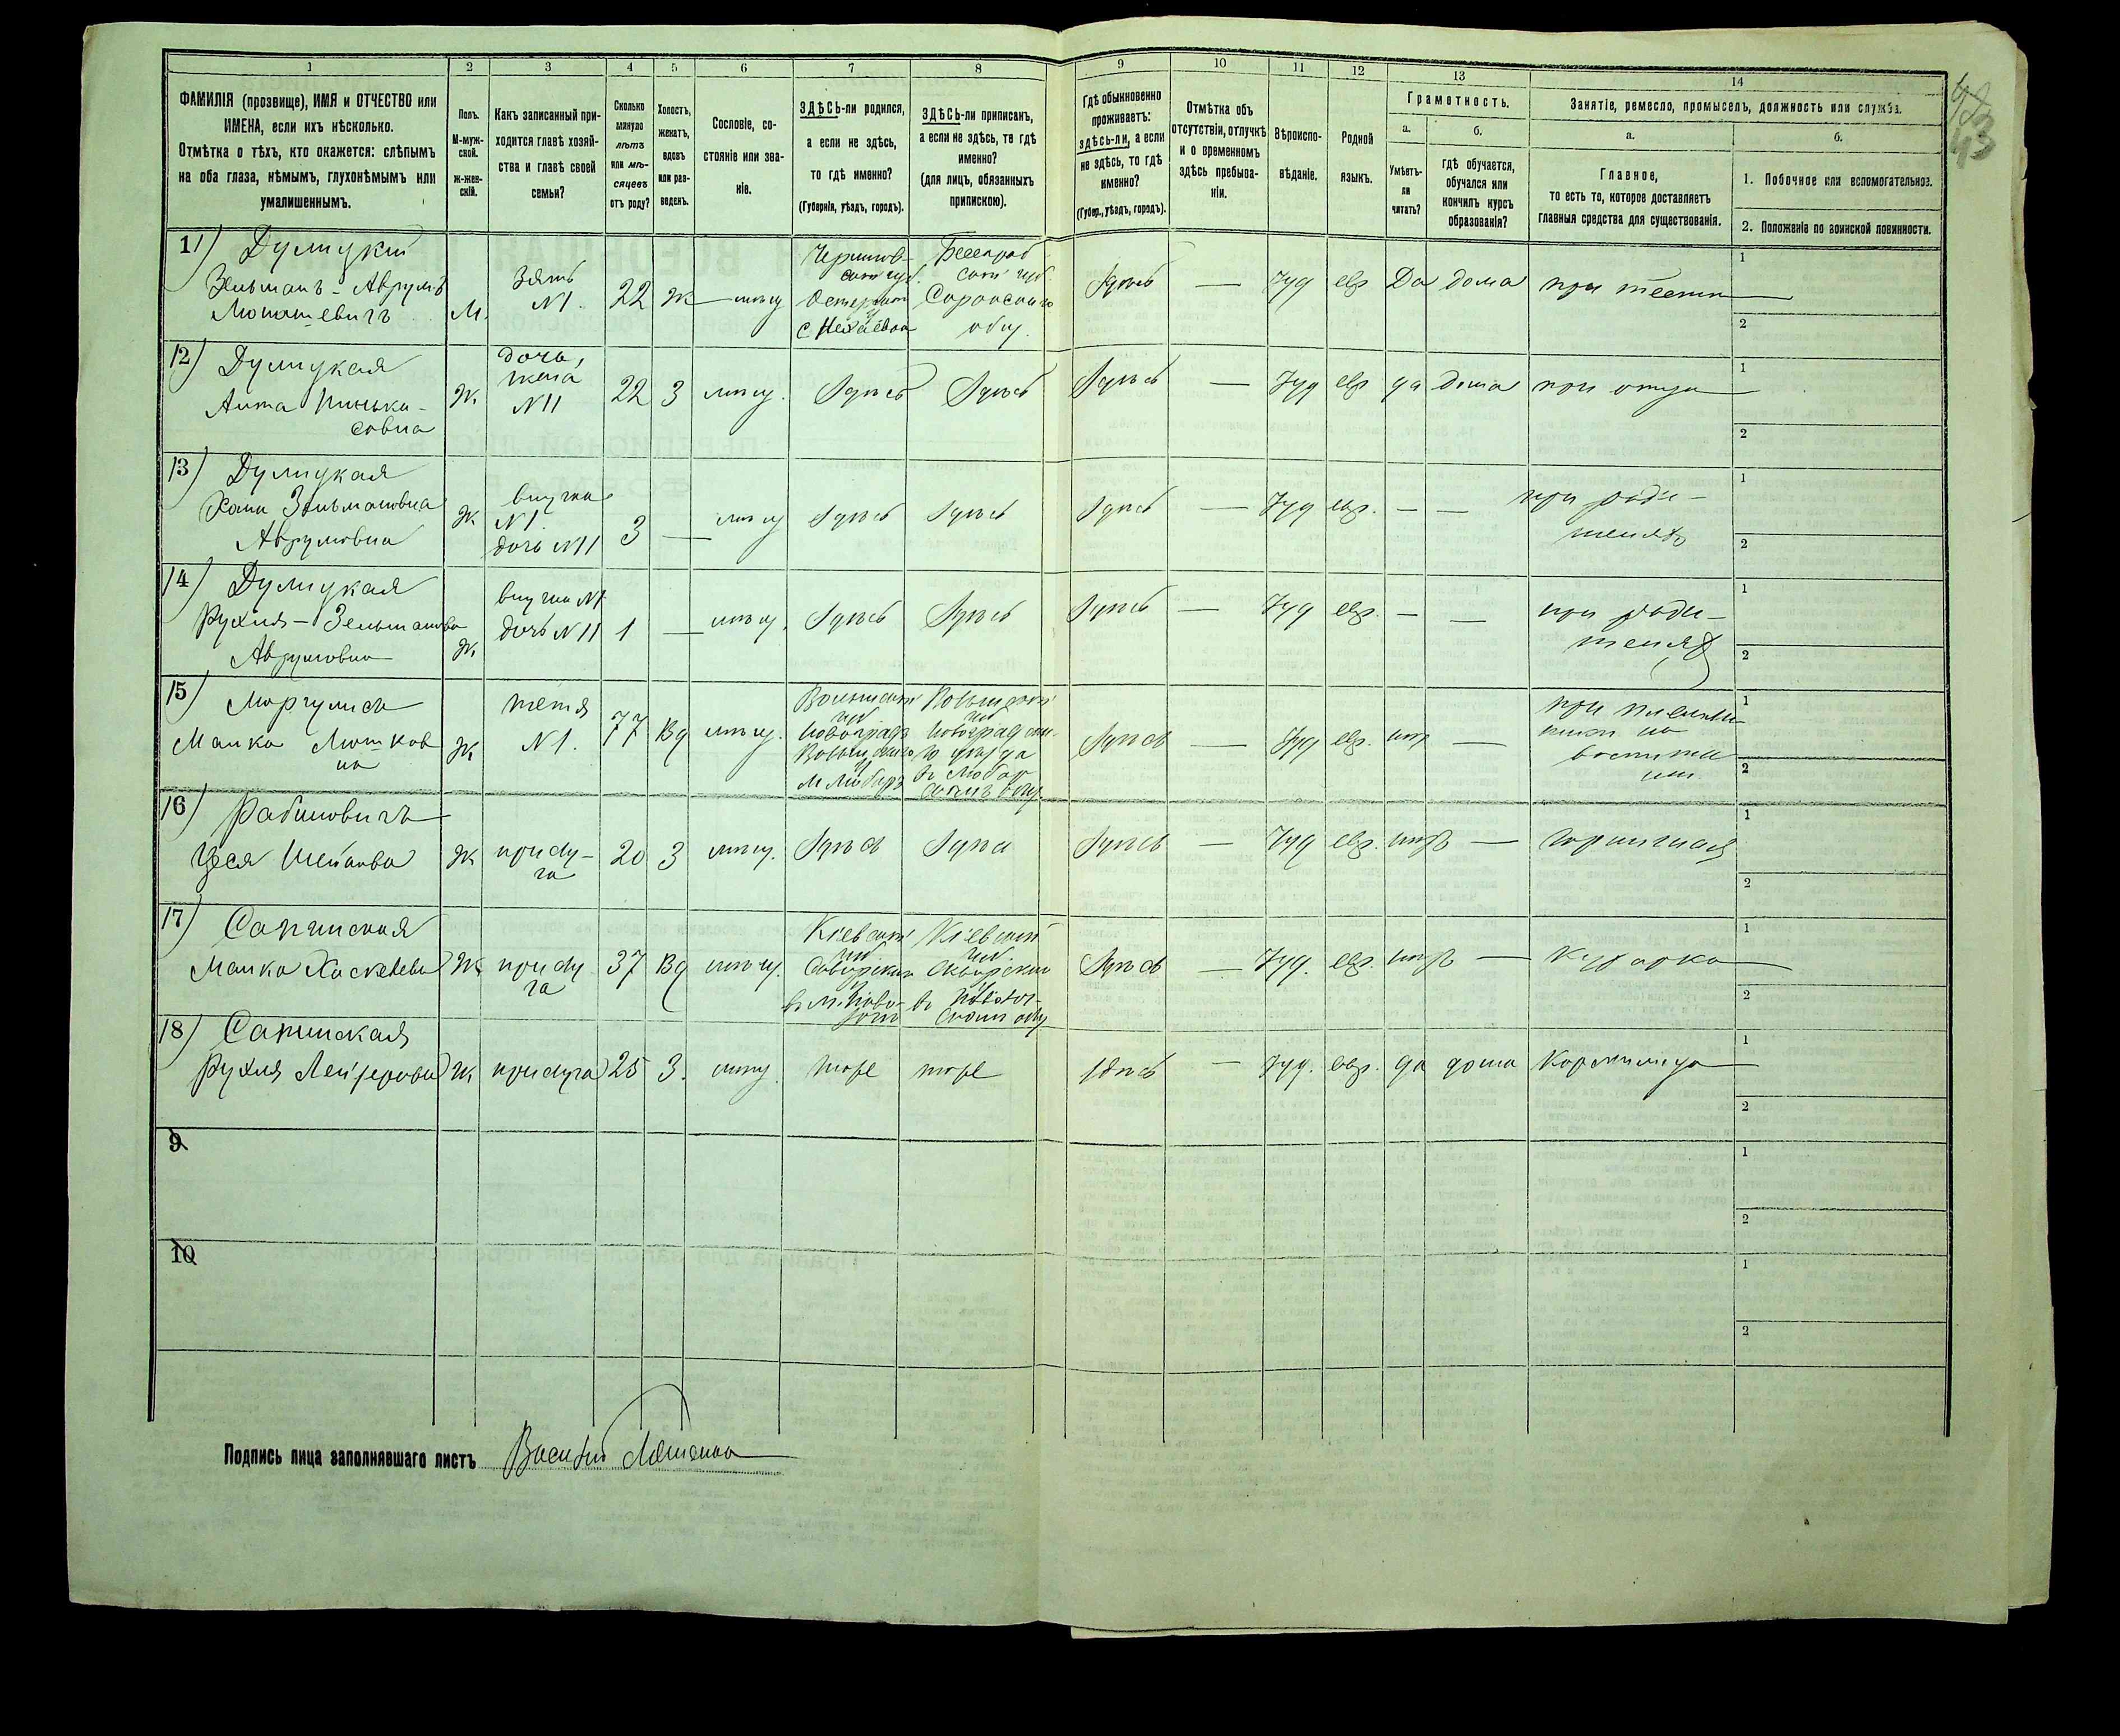 1 2 3 4 5 6 7 8 9 10 11 12 13 14
43
ФАМИЛІЯ (прозвище), ИМЯ и ОТЧЕСТВО или
ИМЕНА, если ихъ нѣсколько.
Отмѣтка о тѣхъ, кто окажется: слѣпымъ
на оба глаза, нѣмымъ, глухонѣмымъ или
умалишеннымъ.
Полъ.
М-муж-
ской.
Ж-жен-
скій.
Какъ записанный при-
ходится главѣ хозяй-
ства и главѣ своей
семьи?
Сколько
минуло
лѣтъ
или мѣ-
сяцевъ
отъ роду?
Холостъ,
женатъ,
вдовъ
или раз-
веденъ.
Сословіе, со-
стояніе или зва-
ніе.
ЗДѢСЬ-ли родился,
а если не здѣсь,
то гдѣ именно?
(Губернія, уѣздъ, городъ).
ЗДѢСЬ-ли приписанъ,
а если не здѣсь, то гдѣ
именно?
(для лицъ, обязанныхъ
припискою).
Гдѣ обыкновенно
проживаетъ:
здѣсь-ли, а если
не здѣсь, то гдѣ
именно?
(Губер., уѣздъ, городъ).
Отмѣтка объ
отсутствіи, отлучкѣ
и о временномъ
здѣсь пребыва-
ніи.
Вѣроиспо-
вѣданіе.
Родной
языкъ.
Грамотность.
а.
Умѣетъ-
ли
читать?
б.
гдѣ обучается,
обучался или
кончилъ курсъ
образованія?
Занятіе, ремесло, промыселъ, должность или служба.
а.
Главное,
то есть то, которое доставляетъ
главныя средства для существованія.
б.
1. Побочное или вспомогательное.
2. Положеніе по воинской повинности.
11) Дулицкій
Зельманъ-Аврумъ
Мономшевичъ
М.
Зять
N1.
22 Ж мѣщ
Чернигов-
ской губ.
Остерскаго
у
с
Бессараб
ской губ.
Сорокскаго
общ.
Здѣсь — Іуд евр Да дома при тестѣ
1
2
12) Дулицкая
Анта Пинька-
совна
Ж.
дочь,
жена
N11
22 З мѣщ. Здѣсь Здѣсь Здѣсь — Іуд евр да дома при отцѣ
1
2
13) Дулицкая
Хана Зельмановна
Аврумовна
Ж
внучка
N1.
дочь N11
3 — мѣщ Здѣсь Здѣсь Здѣсь — Іуд евр. — —
при роди-
теляхъ
1
2
14) Дулицкая
Рухля-Зельманова
Аврумовна
Ж.
внучка N1
дочь N11
1 — мѣщ. Здѣсь Здѣсь Здѣсь — Іуд евр. — —
при роди-
теляхъ
1
2
15) Моргулисъ
Малка Мошков
на
Ж
тетя
N1.
77 Вд мѣщ.
Волынской
губ
Новоградъ
Волынскаго
у
м Любаръ
Волынской
губ
Новоградволын-
го уѣзда
въ Любар
скомъ общ.
Здѣсь — Іуд евр. нѣтъ —
при племян
никѣ на
1
2
16) Рабиновичъ
Цеся Шейлова
Ж
прислу-
га
20 З мѣщ. Здѣсь Здѣсь Здѣсь — Іуд евр. нѣтъ — горничная
1
2
17) Сапинская
Малка Хаскелева
Ж
прислу
га
37 Вд мѣщ.
Кіевской
губ
Сквирскаго
у
въ м.
Кіевской
губ.
Сквирскаго
у
въ
скомъ общ
Здѣсь — Іуд. евр. нѣтъ — Кухарка
1
2
18) Сапинская
Рухля Лейзерова Ж прислуга 25 З. мѣщ. тоже тоже здѣсь — Іуд. евр. да дома Кормилица
1
2
9
1
2
10
1
2
Подпись лица заполнявшаго листъ Василій